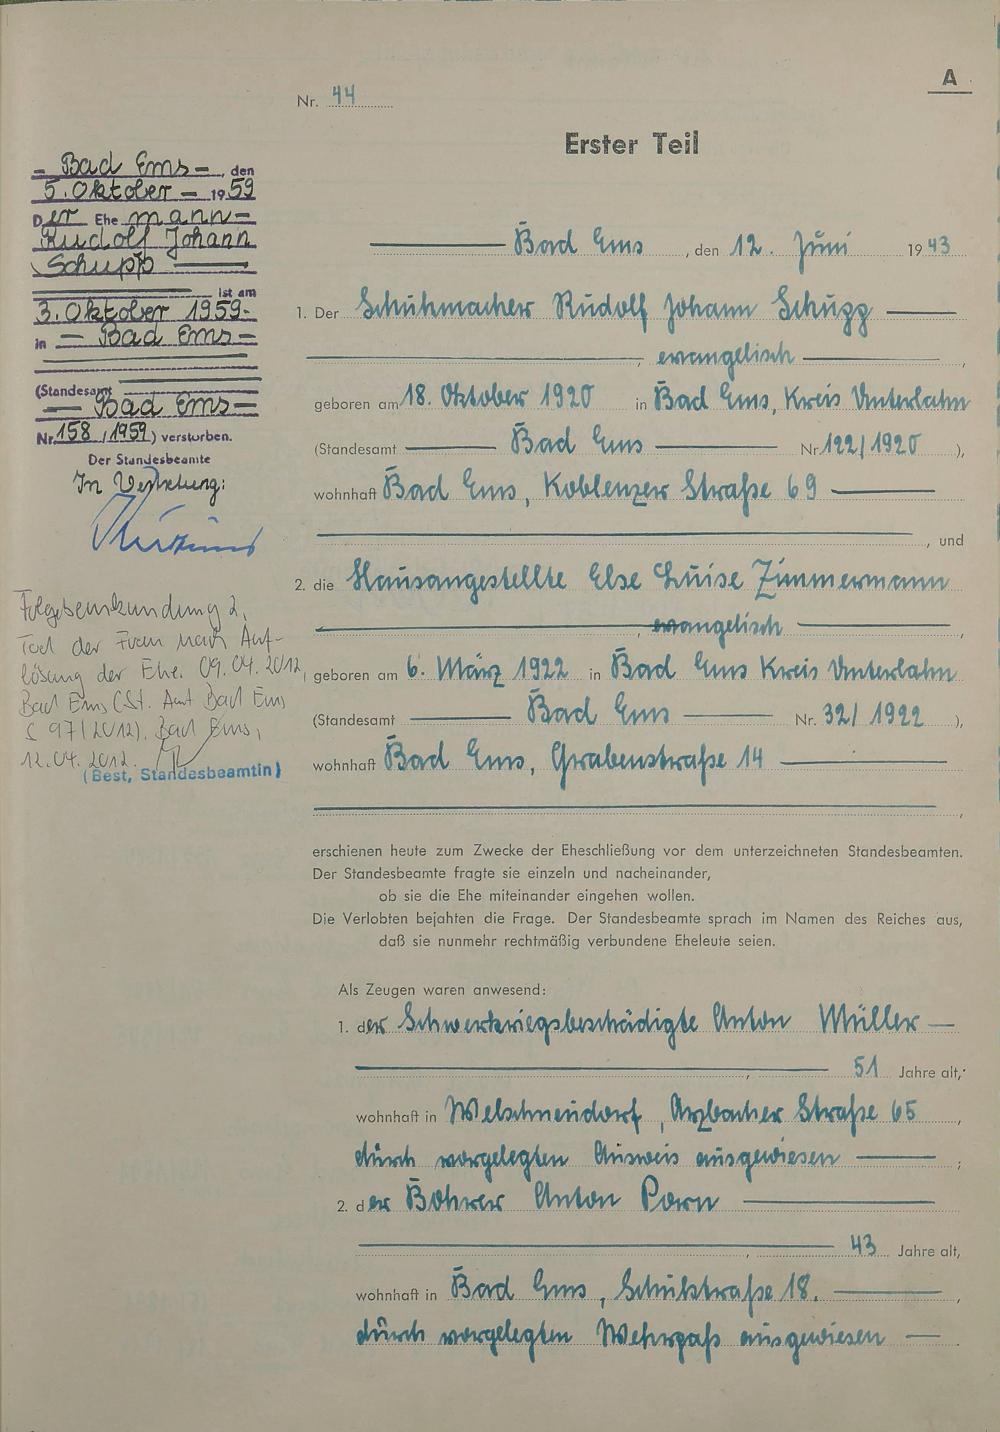 A
Nr. 44
Erster Teil
Bad Ems, den 12. Juni 1943
1. Der Schuhmacher Rudolf Johann Schupp
, evangelisch,
geboren am 18. Oktober 1920 in Bad Ems, Kreis Unterlahn
(Standesamt Bad Ems Nr. 122/1920),
wohnhaft Bad Ems, Koblenzer Straße 69
, und
2. die Hausangestellte Else Luise Zimmermann
, evangelisch,
geboren am 6. März 1922 in Bad Ems Kreis Unterlahn
(Standesamt Bad Ems Nr. 32/1922),
wohnhaft Bad Ems, Grabenstraße 14
,
erschienen heute zum Zwecke der Eheschließung vor dem unterzeichneten Standesbeamten.
Der Standesbeamte fragte sie einzeln und nacheinander,
ob sie die Ehe miteinander eingehen wollen.
Die Verlobten bejahten die Frage. Der Standesbeamte sprach im Namen des Reiches aus,
daß sie nunmehr rechtmäßig verbundene Eheleute seien.
Als Zeugen waren anwesend:
1. der Schwerkriegsbeschädigte Anton Müller
, 51 Jahre alt,
wohnhaft in Welschneudorf, Arzbacher Straße 65,
durch vorgelegten Ausweis ausgewiesen;
2. der Bohrer Anton Porn
, 43 Jahre alt,
wohnhaft in Bad Ems, Schulstraße 18.,
durch vorgelegten Wehrpaß ausgewiesen
- Bad Ems -, den
5. Oktober - 1959
Der Ehemann -
Rudolf Johann
Schupp
ist am
3. Oktober 1959 -
in - Bad Ems -
(Standesamt
- Bad Ems -
Nr. 158/1959) verstorben.
Der Standesbeamte
In Vertretung:
Folgebeurkundung 2,
Tod der Frau nach Auf-
lösung der Ehe. 09.04.2012,
Bad Ems (St. Amt Bad Ems
S 97/2012). Bad Ems,
12.04.2012.
(Best, Standesbeamtin)